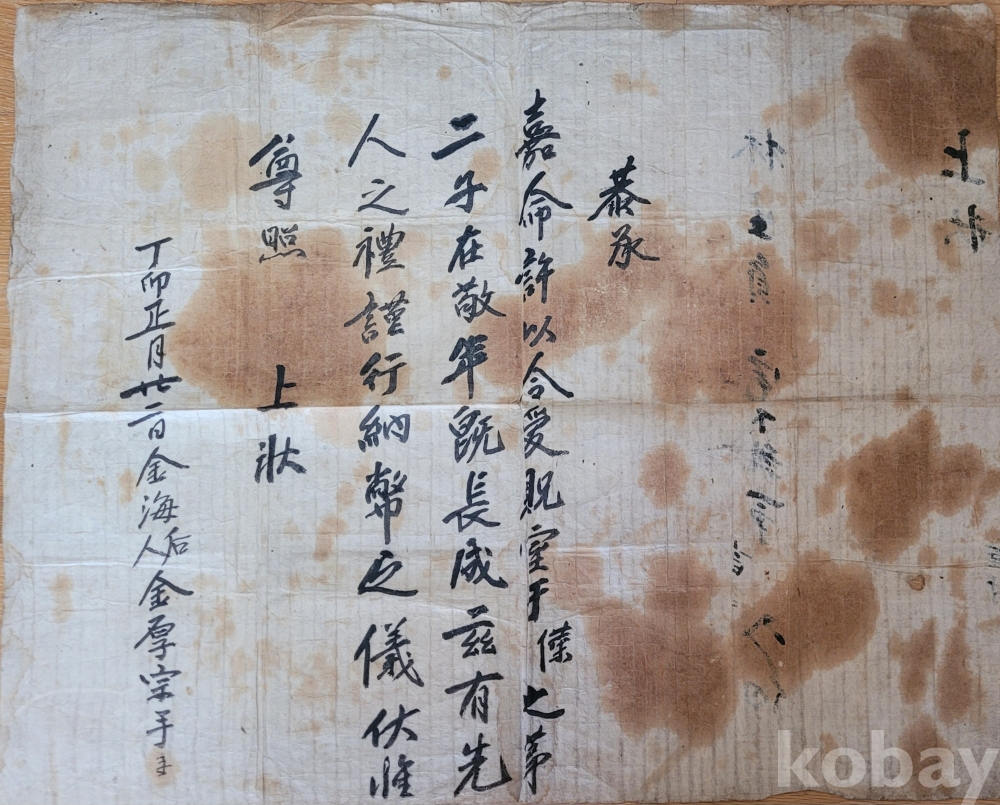 恭承
嘉命許以令愛貺室于僕之第
二子在敬年旣長成茲有先
人之禮謹行納幣之儀伏惟
尊照 上狀
丁卯正月廿二日金海后人金厚宗
kobay